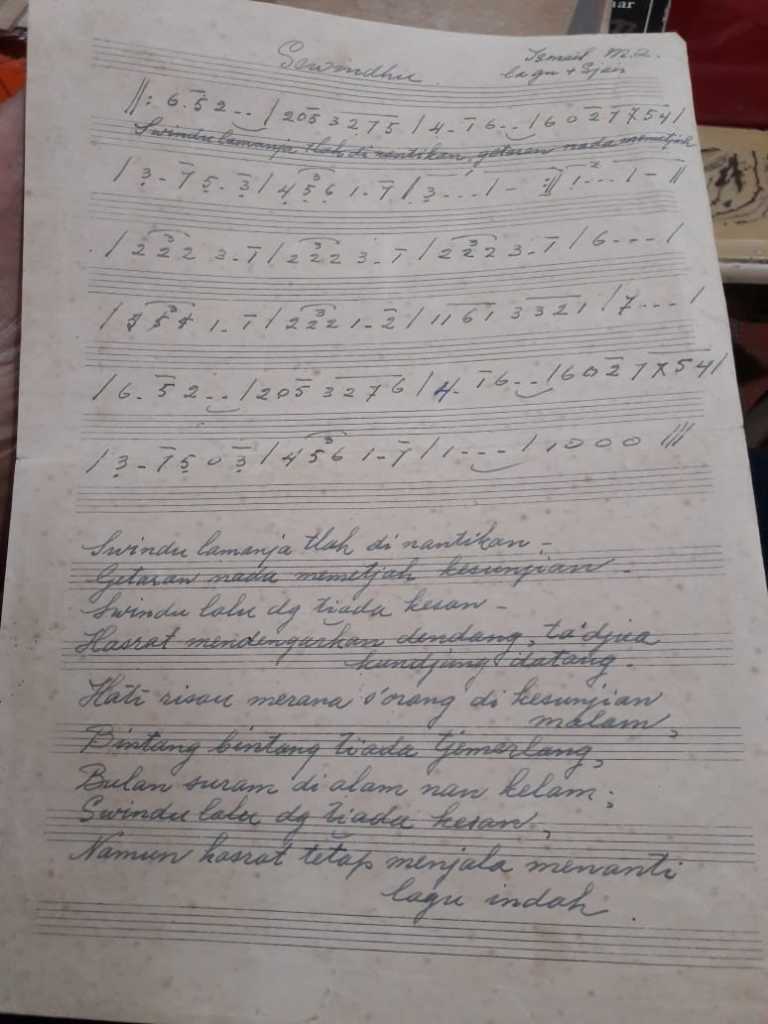 Sewindhu
Ismail M.Z.
lagu + Sjair
||: 6.5 2.. | 205 3275 | 4.1 6.. | 60 277 54 |
Swindu lamanja tlah di nantikan, getaran nada memetjah
| 3-7 5.3 | 456 1-7 | 3... | - :|| 1... | - ||
| 222 3-1 | 222 3-1 | 222 3-1 | 6--- |
1-1 | 222 1-2 | 1161 3321 | 7... |
| 6.5 2.. | 205 3276 | 4.16.. |
| 3-7 5 0 3 | 456 1-7 | 1--- | 1000 |||
Swindu lamanja tlah di nantikan -
Getaran nada memetjah kesunjian -
Swindu lalu dg tiada kesan -
Hasrat mendengarkan dendang, ta'djua
kundjung datang -
Hati risau merana s'orang di kesunjian
malam,
Bintang bintang tiada tjemerlang,
Bulan suram di alam nan kelam;
Swindu lalu dg tiada kesan,
Namun hasrat tetap menjala menanti
lagu indah.
har